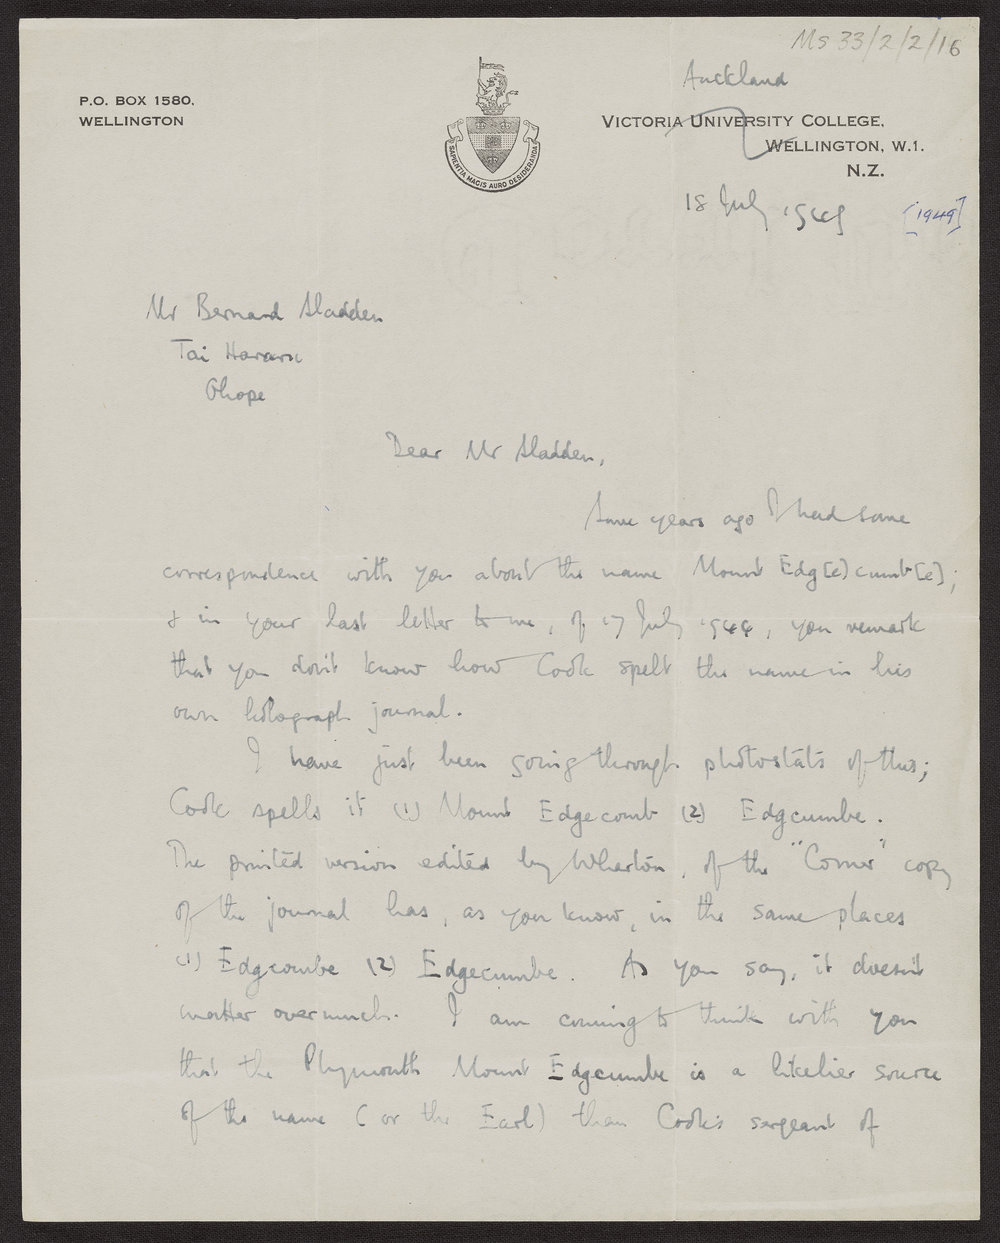 Ms 33/2/2/16
Auckland
P.O. BOX 1580,
WELLINGTON
VICTORIA UNIVERSITY COLLEGE,
WELLINGTON, W.1.
N.Z.
SAPIENTIA MAGIS AURO DESIDERANDA
18 July 1949 [1949]
Mr Bernard Sladden
Tai Harara
Ohope
Dear Mr Sladden,
Some years ago I had some
correspondence with you about the name Mount Edg[e]cumb[e];
& in your last letter to me, of 17 July 1944, you remark
that you don't know how Cook spelt the name in his
own holograph journal.
I have just been going through photostats of this;
Cook spells it (1) Mount Edgecomb (2) Edgcumbe.
The printed version edited by Wharton, of the "Corner" copy
of the journal has, as you know, in the same places
(1) Edgcombe (2) Edgecumbe. As you say, it doesn't
matter overmuch. I am coming to think with you
that the Plymouth Mount Edgcumbe is a likelier source
of the name (or the Earl) than Cook's sergeant of